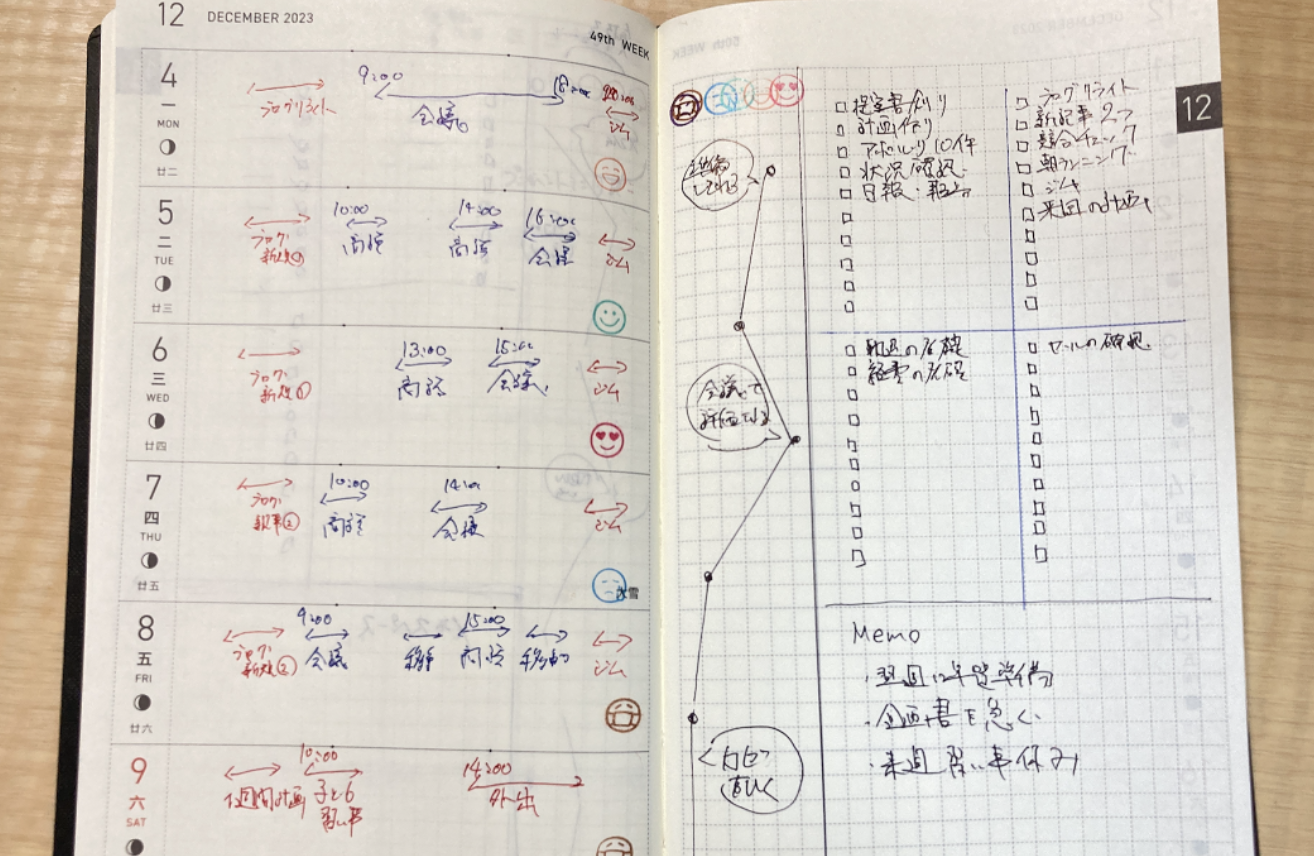 12 DECEMBER 2023
49th WEEK
4
一
MON
廿二
ブログリライト
9:00
会議
18:00
ジム
5
二
TUE
廿三
ブログ
10:00
商談
14:00
商談
16:00
会議
ジム
6
三
WED
廿四
ブログ
新規①
13:00
商談
15:00
会議
ジム
7
四
THU
廿五
ブログ
②
10:00
商談
14:00
会議
ジム
大雪
8
五
FRI
廿六
ブログ
新規②
9:00
会議
移動
15:00
商談
移動
ジム
9
六
SAT
1週間計画
10:00
子ども
習い事
14:00
外出
12
提案書作り
計画作り
アポ取り10件
状況確認
日報・報告
ブログリライト
新記事2つ
競合チェック
朝ランニング
ジム
来週の計画
動画の店確
経費の店確
セールの確認
会議で
評価される
Memo
・翌週は年賀準備
・企画書を急ぐ
・来週習い事休み